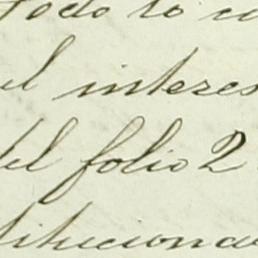 todo lo c
el interes
del folio 2
tituciona